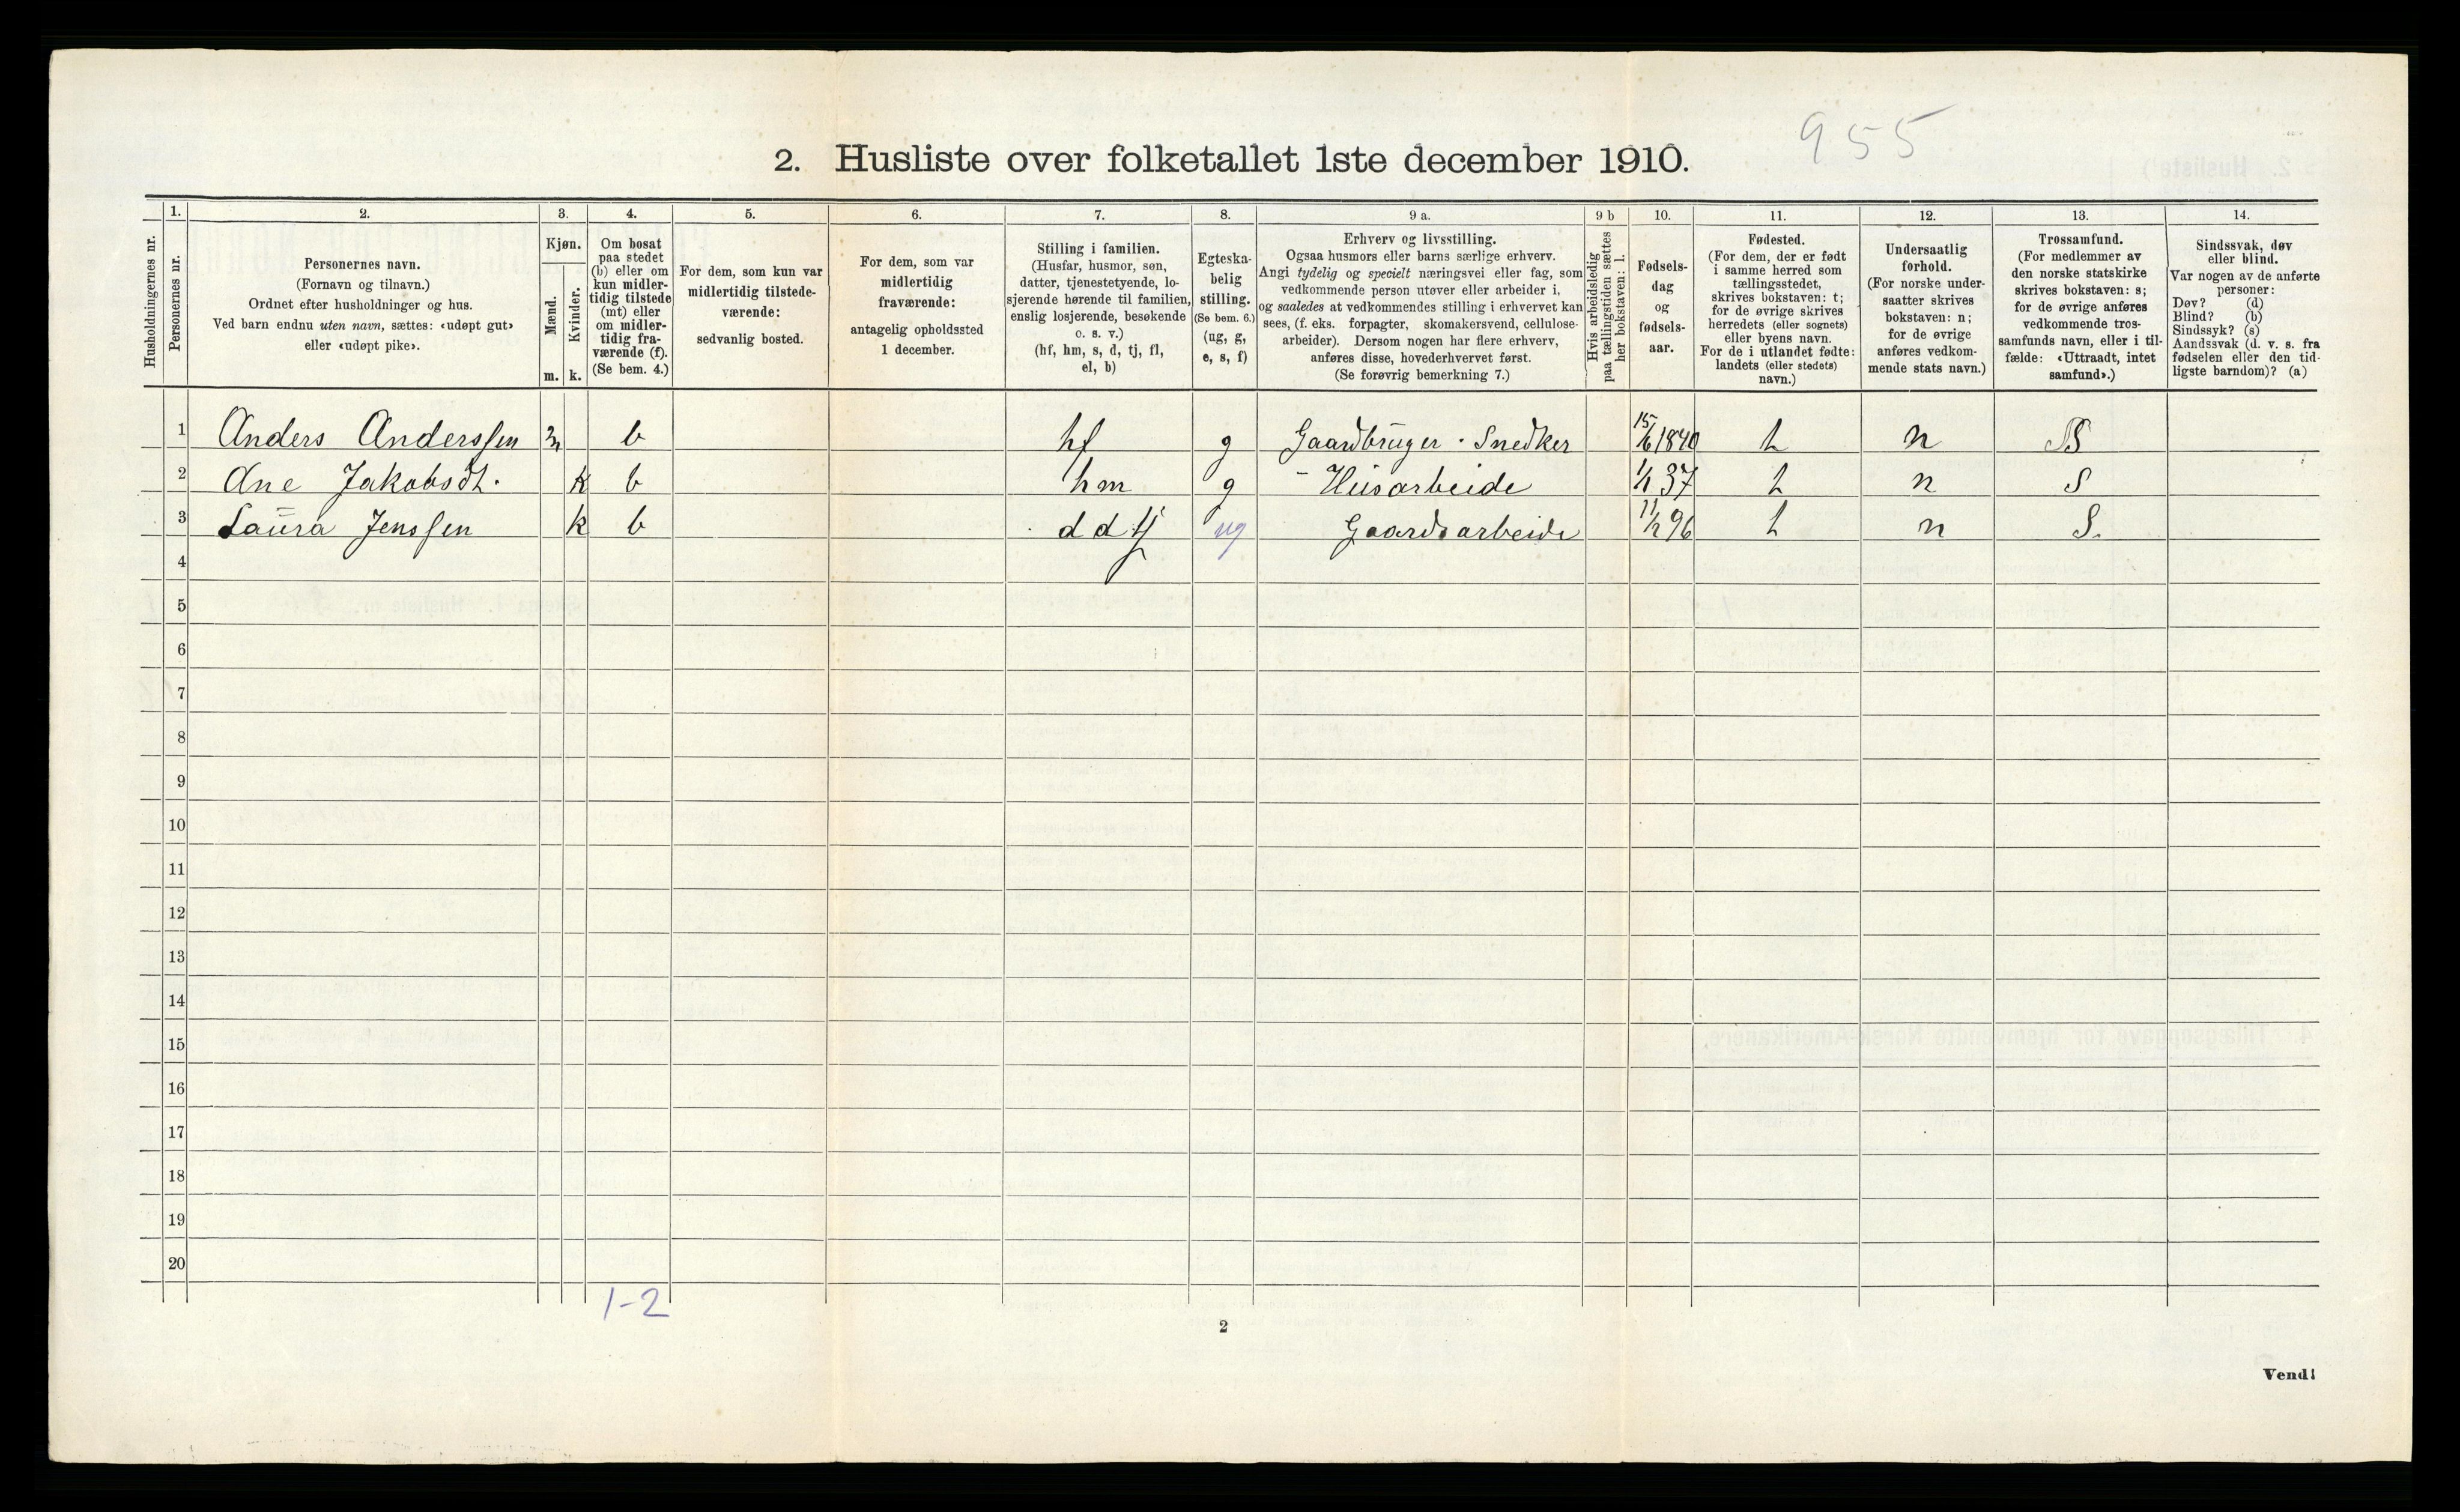 955
2. Husliste over folketallet 1ste december 1910.
Husholdningernes nr.
1. Personernes nr.
2. Personernes navn.
(Fornavn og tilnavn.)
Ordnet efter husholdninger og hus.
Ved barn endnu uten navn, sættes: «udøpt gut»
eller «udøpt pike».
3. Kjøn.
Mænd. m.
Kvinder. k.
4. Om bosat
paa stedet
(b) eller om
kun midler-
tidig tilstede
(mt) eller
om midler-
tidig fra-
værende (f).
(Se bem. 4.)
5. For dem, som kun var
midlertidig tilstede-
værende:
sedvanlig bosted.
6. For dem, som var
midlertidig
fraværende:
antagelig opholdssted
1 december.
7. Stilling i familien.
(Husfar, husmor, søn,
datter, tjenestetyende, lo-
sjerende hørende til familien,
enslig losjerende, besøkende
o. s. v.)
(hf, hm, s, d, tj, fl,
el, b)
8. Egteska-
belig
stilling.
(Se bem. 6.)
(ug, g,
e, s, f)
9 a. Erhverv og livsstilling.
Ogsaa husmors eller barns særlige erhverv.
Angi tydelig og specielt næringsvei eller fag, som
vedkommende person utøver eller arbeider i,
og saaledes at vedkommendes stilling i erhvervet kan
sees, (f. eks. forpagter, skomakersvend, cellulose-
arbeider). Dersom nogen har flere erhverv,
anføres disse, hovederhvervet først.
(Se forøvrig bemerkning 7.)
9 b Hvis arbeidsledig
paa tællingstiden sættes
her bokstaven: l.
10. Fødsels-
dag
og
fødsels-
aar.
11. Fødested.
(For dem, der er født
i samme herred som
tællingsstedet,
skrives bokstaven: t;
for de øvrige skrives
herredets (eller sognets)
eller byens navn.
For de i utlandet fødte:
landets (eller stedets)
navn.)
12. Undersaatlig
forhold.
(For norske under-
saatter skrives
bokstaven: n;
for de øvrige
anføres vedkom-
mende stats navn.)
13. Trossamfund.
(For medlemmer av
den norske statskirke
skrives bokstaven: s;
for de øvrige anføres
vedkommende tros-
samfunds navn, eller i til-
fælde: «Uttraadt, intet
samfund».)
14. Sindssvak, døv
eller blind.
Var nogen av de anførte
personer:
Døv? (d)
Blind? (b)
Sindssyk? (s)
Aandssvak (d. v. s. fra
fødselen eller den tid-
ligste barndom)? (a)
1 Anders Anderssen m b hf g Gaardbruger · Snedker 15/6 1840 t n S
2 Ane Jakobsdt. k b hm g - Husarbeide 1/1 37 t n S
3 Laura Jenssen k b d d tj ug Gaardsarbeide 11/2 96 t n S.
4
5
6
7
8
9
10
11
12
13
14
15
16
17
18
19
20
1-2
2
Vend!